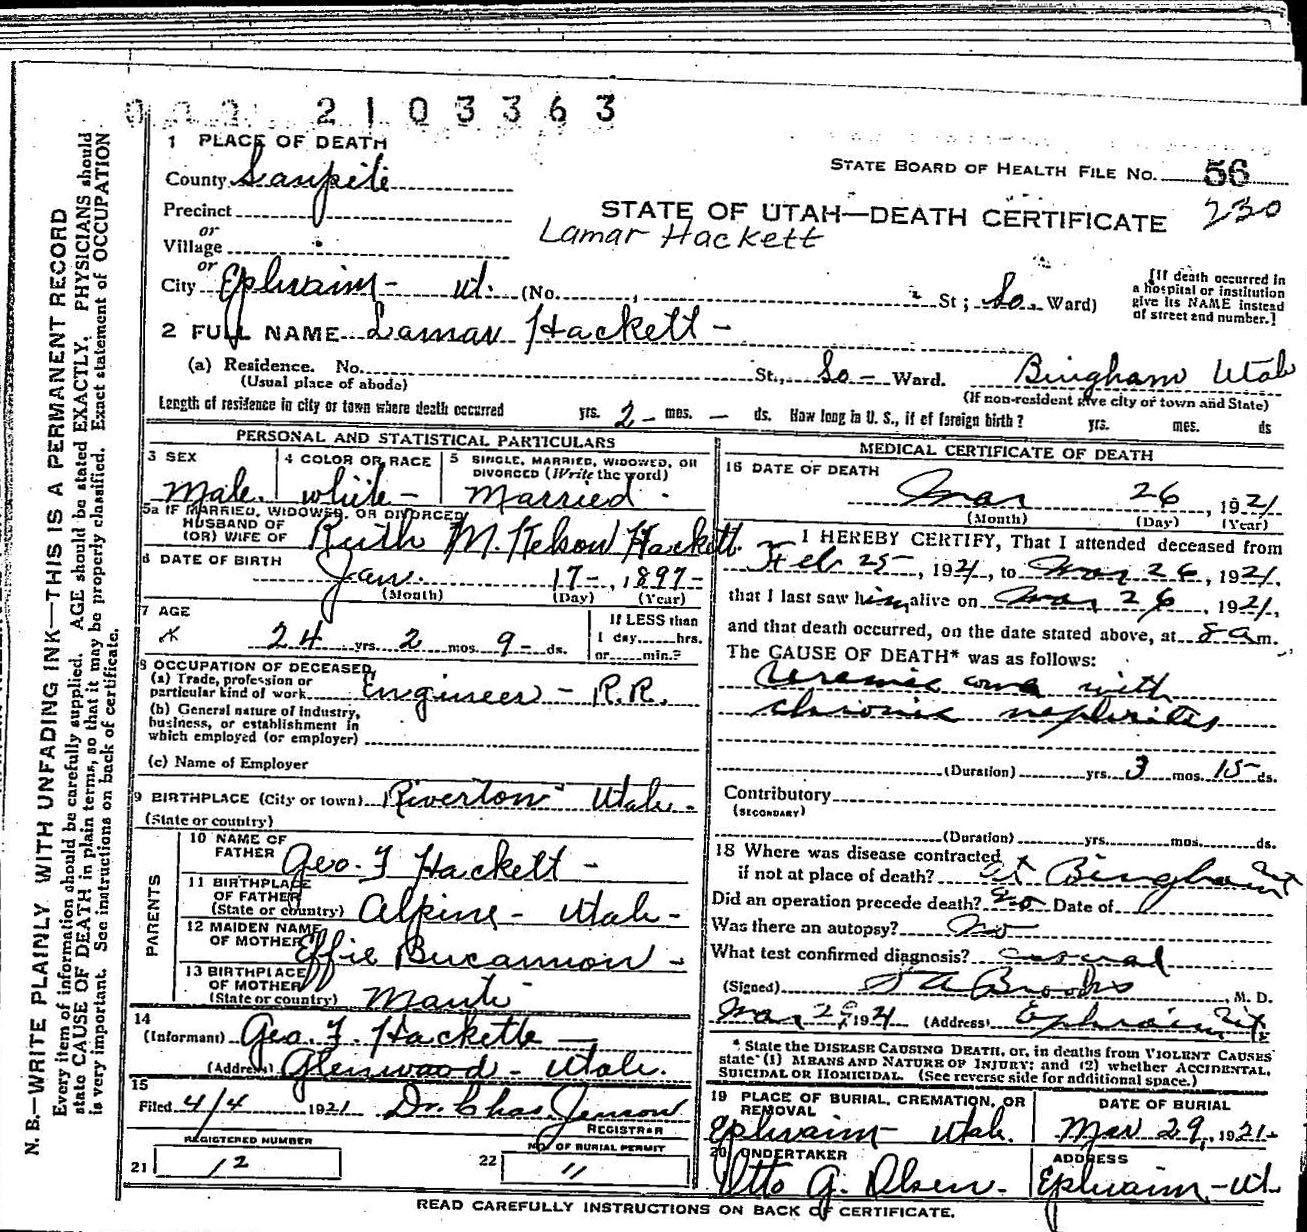 2103363
1 PLACE OF DEATH
STATE BOARD OF HEALTH FILE NO. 56
County Sanpete
230
Precinct
STATE OF UTAH—DEATH CERTIFICATE
or
Lamar Hackett
Village
or
City Ephraim - Ut. (No. , St ; So. Ward)
[If death occurred in
a hospital or institution
give its NAME instead
of street and number.]
2 FULL NAME Lamar Hackett -
(a) Residence. No. St., So - Ward. Bingham Utah
(Usual place of abode)
(If non-resident give city or town and State)
Length of residence in city or town where death occurred yrs. 2 - mos. — ds. How long in U. S., if of foreign birth? yrs. mos. ds
PERSONAL AND STATISTICAL PARTICULARS
3 SEX
Male.
4 COLOR OR RACE
white -
5 SINGLE, MARRIED, WIDOWED, OR
DIVORCED (Write the word)
Married
5a IF MARRIED, WIDOWED, OR DIVORCED
HUSBAND OF
(OR) WIFE OF Ruth M. Nelson Hackett.
6 DATE OF BIRTH
Jan. 17 -, 1897 -
(Month) (Day) (Year)
7 AGE
24 yrs. 2 mos 9 - ds.
If LESS than
1 day hrs.
or min.?
8 OCCUPATION OF DECEASED
(a) Trade, profession or
particular kind of work Engineer - R.R.
(b) General nature of industry,
business, or establishment in
which employed (or employer)
(c) Name of Employer
9 BIRTHPLACE (City or town) Riverton Utah -
(State or country)
PARENTS
10 NAME OF
FATHER Geo. F Hackett -
11 BIRTHPLACE
OF FATHER
(State or country) Alpine - Utah -
12 MAIDEN NAME
OF MOTHER Effie Bucannon -
13 BIRTHPLACE
OF MOTHER
(State or country) Manti
14
(Informant) Geo. F. Hackett
(Address) Glenwood - Utah.
15
Filed 4/4 1921 Dr. Chas. Jenson
REGISTRAR
REGISTERED NUMBER
21 12
NO OF BURIAL PERMIT
22 11
MEDICAL CERTIFICATE OF DEATH
16 DATE OF DEATH
Mar 26, 1921
(Month) (Day) (Year)
I HEREBY CERTIFY, That I attended deceased from
Feb 25, 1921, to Mar 26, 1921.
that I last saw him alive on Mar 26, 1921,
and that death occurred, on the date stated above, at 8 a m.
The CAUSE OF DEATH* was as follows:
Uremic coma with
chronic nephritis
(Duration) yrs. 3 mos. 15 ds.
Contributory
(SECONDARY)
(Duration) yrs. mos. ds.
18 Where was disease contracted
if not at place of death? At Bingham Ut
Did an operation precede death? No Date of
Was there an autopsy? No
What test confirmed diagnosis?
(Signed) Brooks, M. D.
Mar 1921 (Address) Ephraim, Ut
* State the DISEASE CAUSING DEATH, or, in deaths from VIOLENT CAUSES
state (1) MEANS AND NATURE OF INJURY; and (2) whether ACCIDENTAL,
SUICIDAL OR HOMICIDAL. (See reverse side for additional space.)
19 PLACE OF BURIAL, CREMATION, OR
REMOVAL
Ephraim Utah.
DATE OF BURIAL
Mar 29, 1921-
20 UNDERTAKER
Otto G. Olsen -
ADDRESS
Ephraim - Ut.
READ CAREFULLY INSTRUCTIONS ON BACK OF CERTIFICATE.
N. B.—WRITE PLAINLY WITH UNFADING INK—THIS IS A PERMANENT RECORD
Every item of information should be carefully supplied. AGE should be stated EXACTLY. PHYSICIANS should
state CAUSE OF DEATH in plain terms, so that it may be properly classified. Exact statement of OCCUPATION
is very important. See instructions on back of certificate.